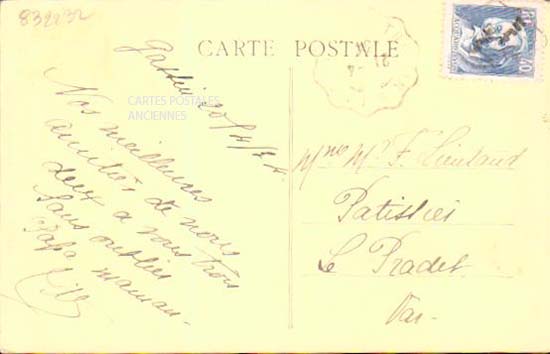 832232
CARTE POSTALE
CARTES POSTALES
ANCIENNES
Nos meilleures
amitiés de nous
deux a vous trois
sans oublier
Papa maman
Mme Mr F. Lieutaud
Patissier
Le Pradet
Var